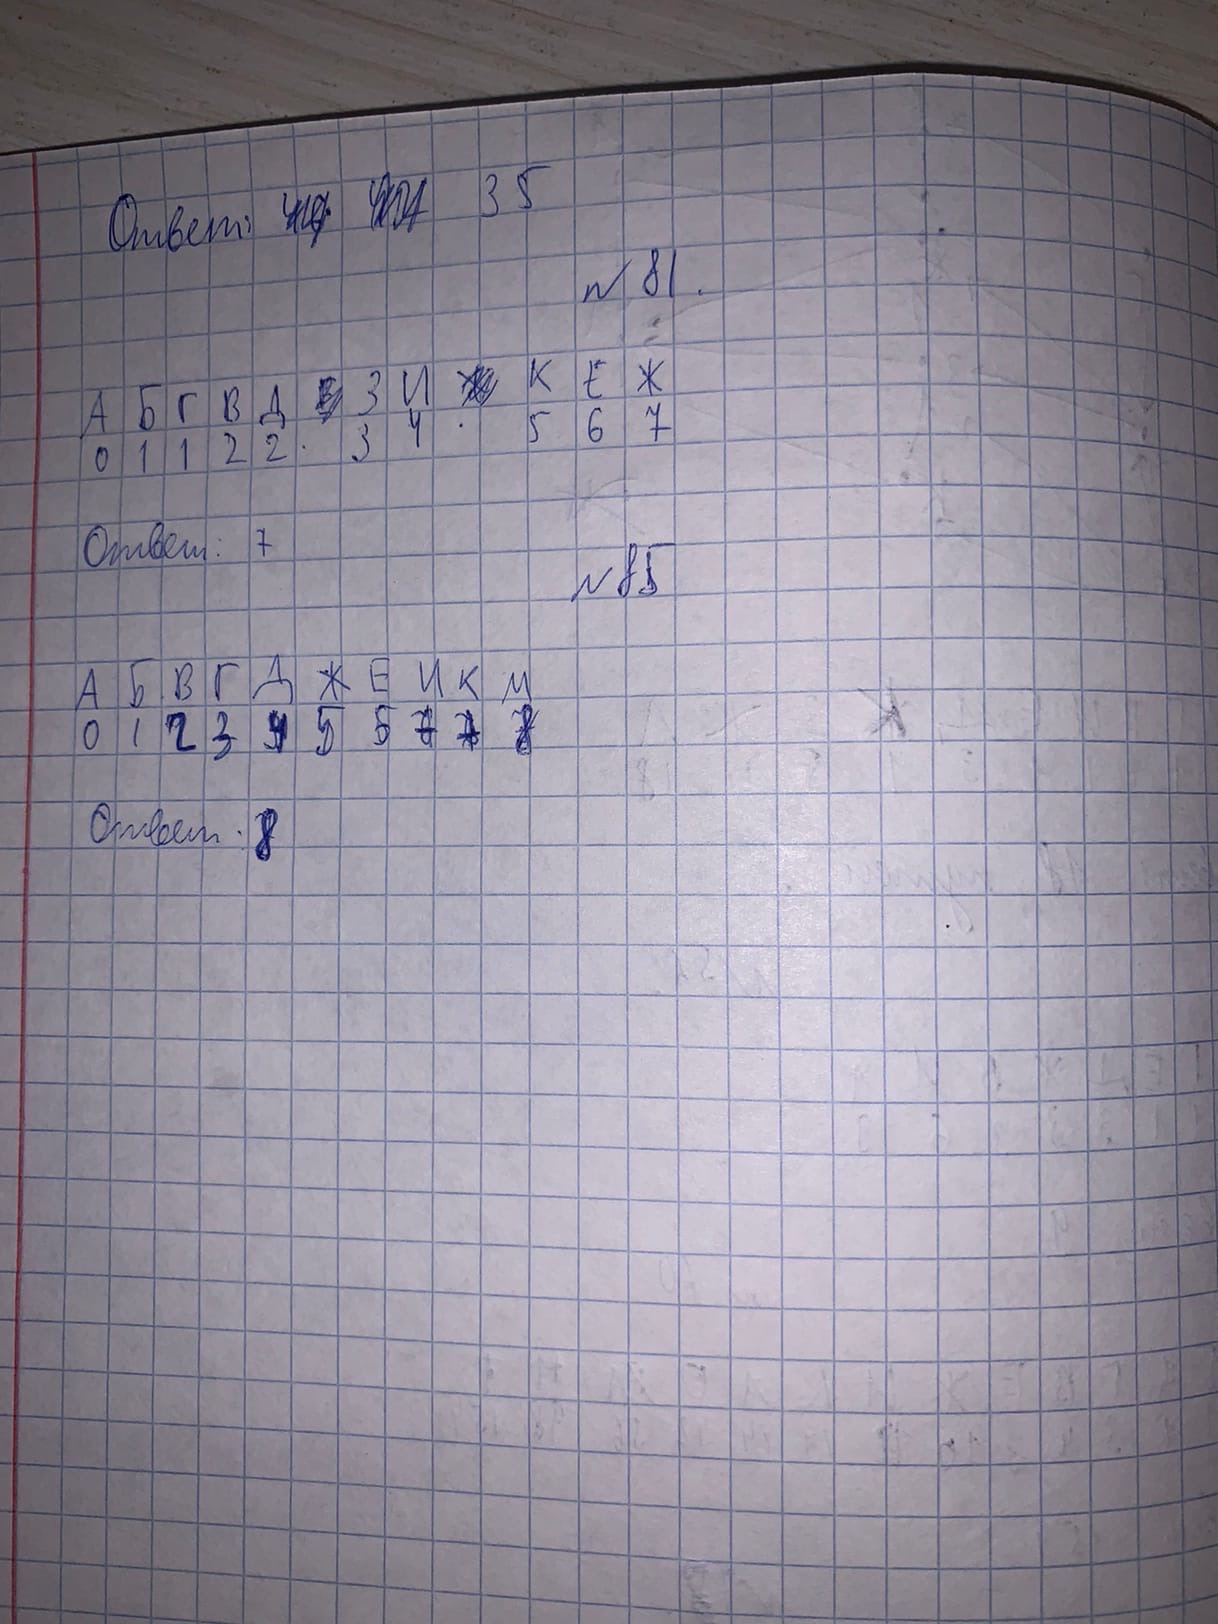 Ответ: 35
№ 81.
А Б Г В Д З И К Е Ж
0 1 1 2 2 . 3 4 . 5 6 7
Ответ: 7
№ 85
А Б В Г Д Ж Е И К М
0 1 2 3 4 5 5 7 7 8
Ответ: 8